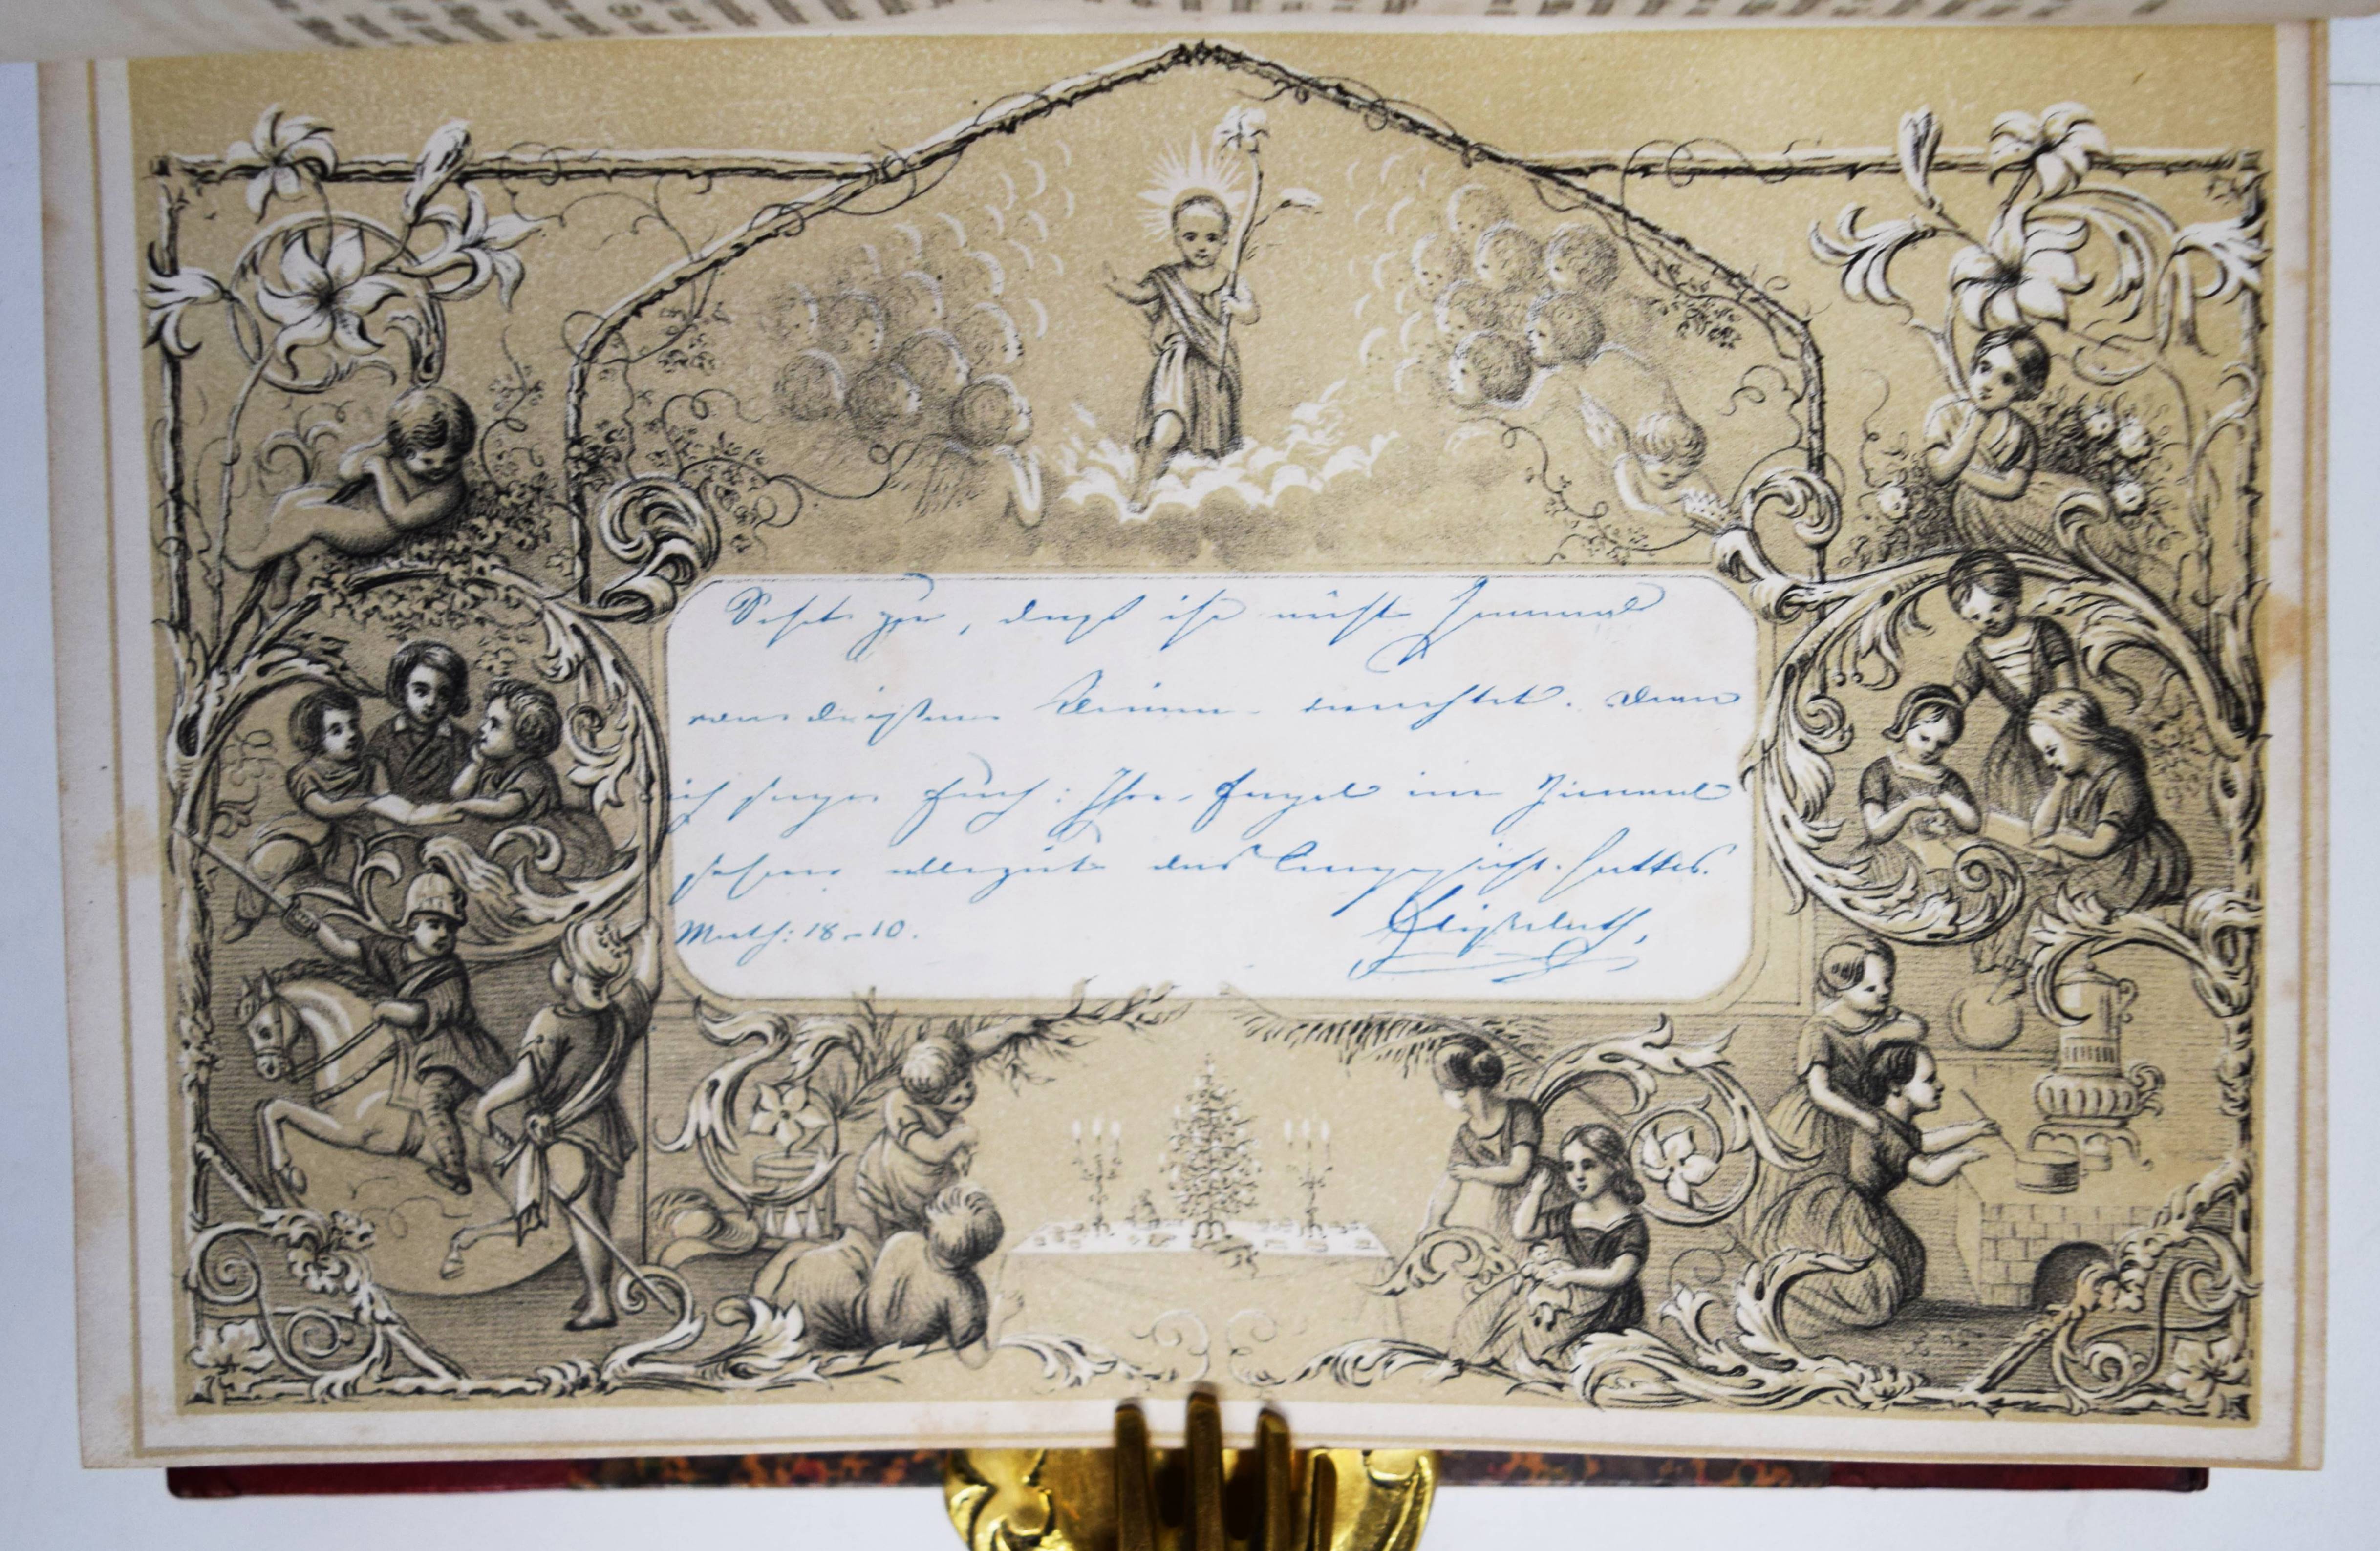 Sehet zu, daß ihr nicht Jemand
von diesen Kleinen verachtet. Denn
ich sage Euch: Ihre Engel im Himmel
sehen allezeit das Angesicht Gottes.
Math: 18-10. Elisabeth.